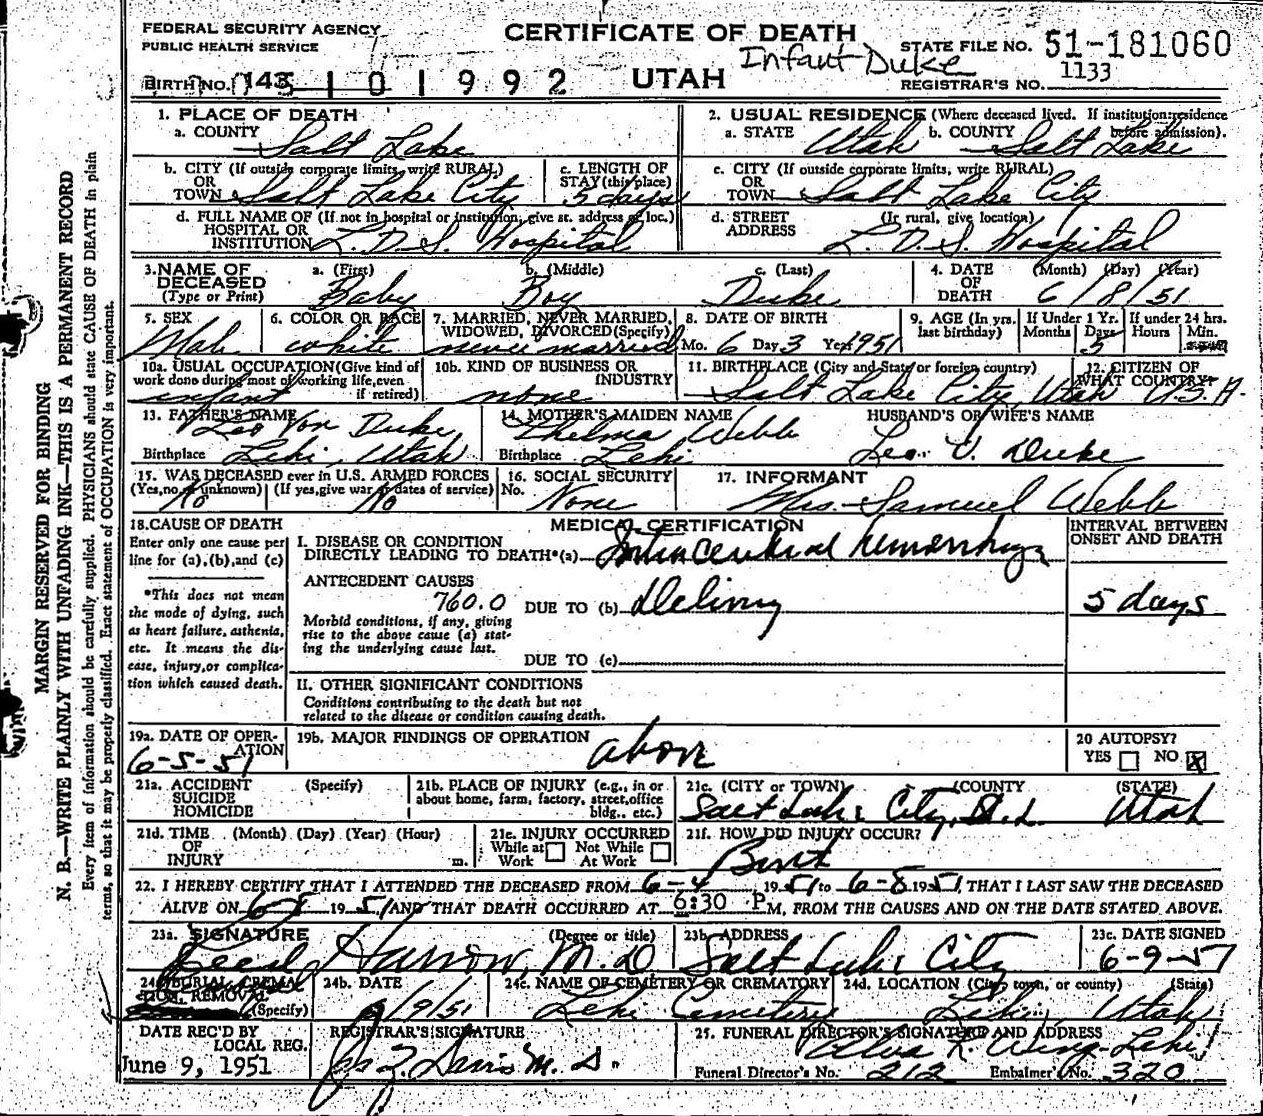 FEDERAL SECURITY AGENCY
PUBLIC HEALTH SERVICE
CERTIFICATE OF DEATH
Infant Duke
STATE FILE NO. 51-181060
BIRTH NO. 143 101992
UTAH
REGISTRAR'S NO. 1133
1. PLACE OF DEATH
a. COUNTY Salt Lake
2. USUAL RESIDENCE (Where deceased lived. If institution:residence before admission).
a. STATE Utah b. COUNTY Salt Lake
b. CITY (If outside corporate limits, write RURAL) OR TOWN Salt Lake City
c. LENGTH OF STAY (this place) 5 days
c. CITY (If outside corporate limits, write RURAL) OR TOWN Salt Lake City
d. FULL NAME OF (If not in hospital or institution, give st. address or loc.) HOSPITAL OR INSTITUTION L.D.S. Hospital
d. STREET ADDRESS (If rural, give location) L.D.S. Hospital
3. NAME OF DECEASED (Type or Print) a. (First) Baby b. (Middle) Boy c. (Last) Duke
4. DATE OF DEATH (Month) (Day) (Year) 6/8/51
5. SEX Male
6. COLOR OR RACE white
7. MARRIED, NEVER MARRIED, WIDOWED, DIVORCED (Specify) never married
8. DATE OF BIRTH Mo. 6 Day 3 Year 1951
9. AGE (In yrs. last birthday) If Under 1 Yr. Months Days 5 If under 24 hrs. Hours Min.
10a. USUAL OCCUPATION (Give kind of work done during most of working life, even if retired) infant
10b. KIND OF BUSINESS OR INDUSTRY none
11. BIRTHPLACE (City and State or foreign country) Salt Lake City, Utah
12. CITIZEN OF WHAT COUNTRY? U.S.A.
13. FATHER'S NAME Leo Von Duke
Birthplace Lehi, Utah
14. MOTHER'S MAIDEN NAME Thelma Webb
Birthplace Lehi
HUSBAND'S OR WIFE'S NAME
Leo. V. Duke
15. WAS DECEASED ever in U.S. ARMED FORCES (Yes, no, or unknown) No (If yes, give war or dates of service) No
16. SOCIAL SECURITY No. None
17. INFORMANT Mrs. Samuel Webb
18. CAUSE OF DEATH
Enter only one cause per line for (a), (b), and (c)
*This does not mean the mode of dying, such as heart failure, asthenia, etc. It means the disease, injury, or complication which caused death.
MEDICAL CERTIFICATION
INTERVAL BETWEEN ONSET AND DEATH
I. DISEASE OR CONDITION DIRECTLY LEADING TO DEATH*(a) Intracerebral hemorrhage
ANTECEDENT CAUSES
760.0 DUE TO (b) Delivery 5 days
Morbid conditions, if any, giving rise to the above cause (a) stating the underlying cause last.
DUE TO (c)
II. OTHER SIGNIFICANT CONDITIONS
Conditions contributing to the death but not related to the disease or condition causing death.
19a. DATE OF OPERATION 6-5-51
19b. MAJOR FINDINGS OF OPERATION above
20 AUTOPSY? YES NO X
21a. ACCIDENT SUICIDE HOMICIDE (Specify)
21b. PLACE OF INJURY (e.g., in or about home, farm, factory, street, office bldg., etc.)
21c. (CITY OR TOWN) (COUNTY (STATE)
Salt Lake City, S.L. Utah
21d. TIME OF INJURY (Month) (Day) (Year) (Hour) m.
21e. INJURY OCCURRED While at Work Not While At Work
21f. HOW DID INJURY OCCUR? Birth
22. I HEREBY CERTIFY THAT I ATTENDED THE DECEASED FROM 6-4, 1951 to 6-8 1951, THAT I LAST SAW THE DECEASED
ALIVE ON 6-8 1951 AND THAT DEATH OCCURRED AT 6:30 P.M, FROM THE CAUSES AND ON THE DATE STATED ABOVE.
23a. SIGNATURE (Degree or title) Harrow, M.D
23b. ADDRESS Salt Lake City
23c. DATE SIGNED 6-9-51
24a. BURIAL, CREMATION, REMOVAL (Specify)
24b. DATE 6/9/51
24c. NAME OF CEMETERY OR CREMATORY Lehi Cemetery
24d. LOCATION (City, town, or county) (State) Lehi, Utah
DATE REC'D BY LOCAL REG. June 9, 1951
REGISTRAR'S SIGNATURE Davis M.D.
25. FUNERAL DIRECTOR'S SIGNATURE AND ADDRESS Alva R. Wing Lehi
Funeral Director's No. 212 Embalmer's No. 320
MARGIN RESERVED FOR BINDING
N. B.—WRITE PLAINLY WITH UNFADING INK—THIS IS A PERMANENT RECORD
Every item of information should be carefully supplied. PHYSICIANS should state CAUSE OF DEATH in plain
terms, so that it may be properly classified. Exact statement of OCCUPATION is very important.